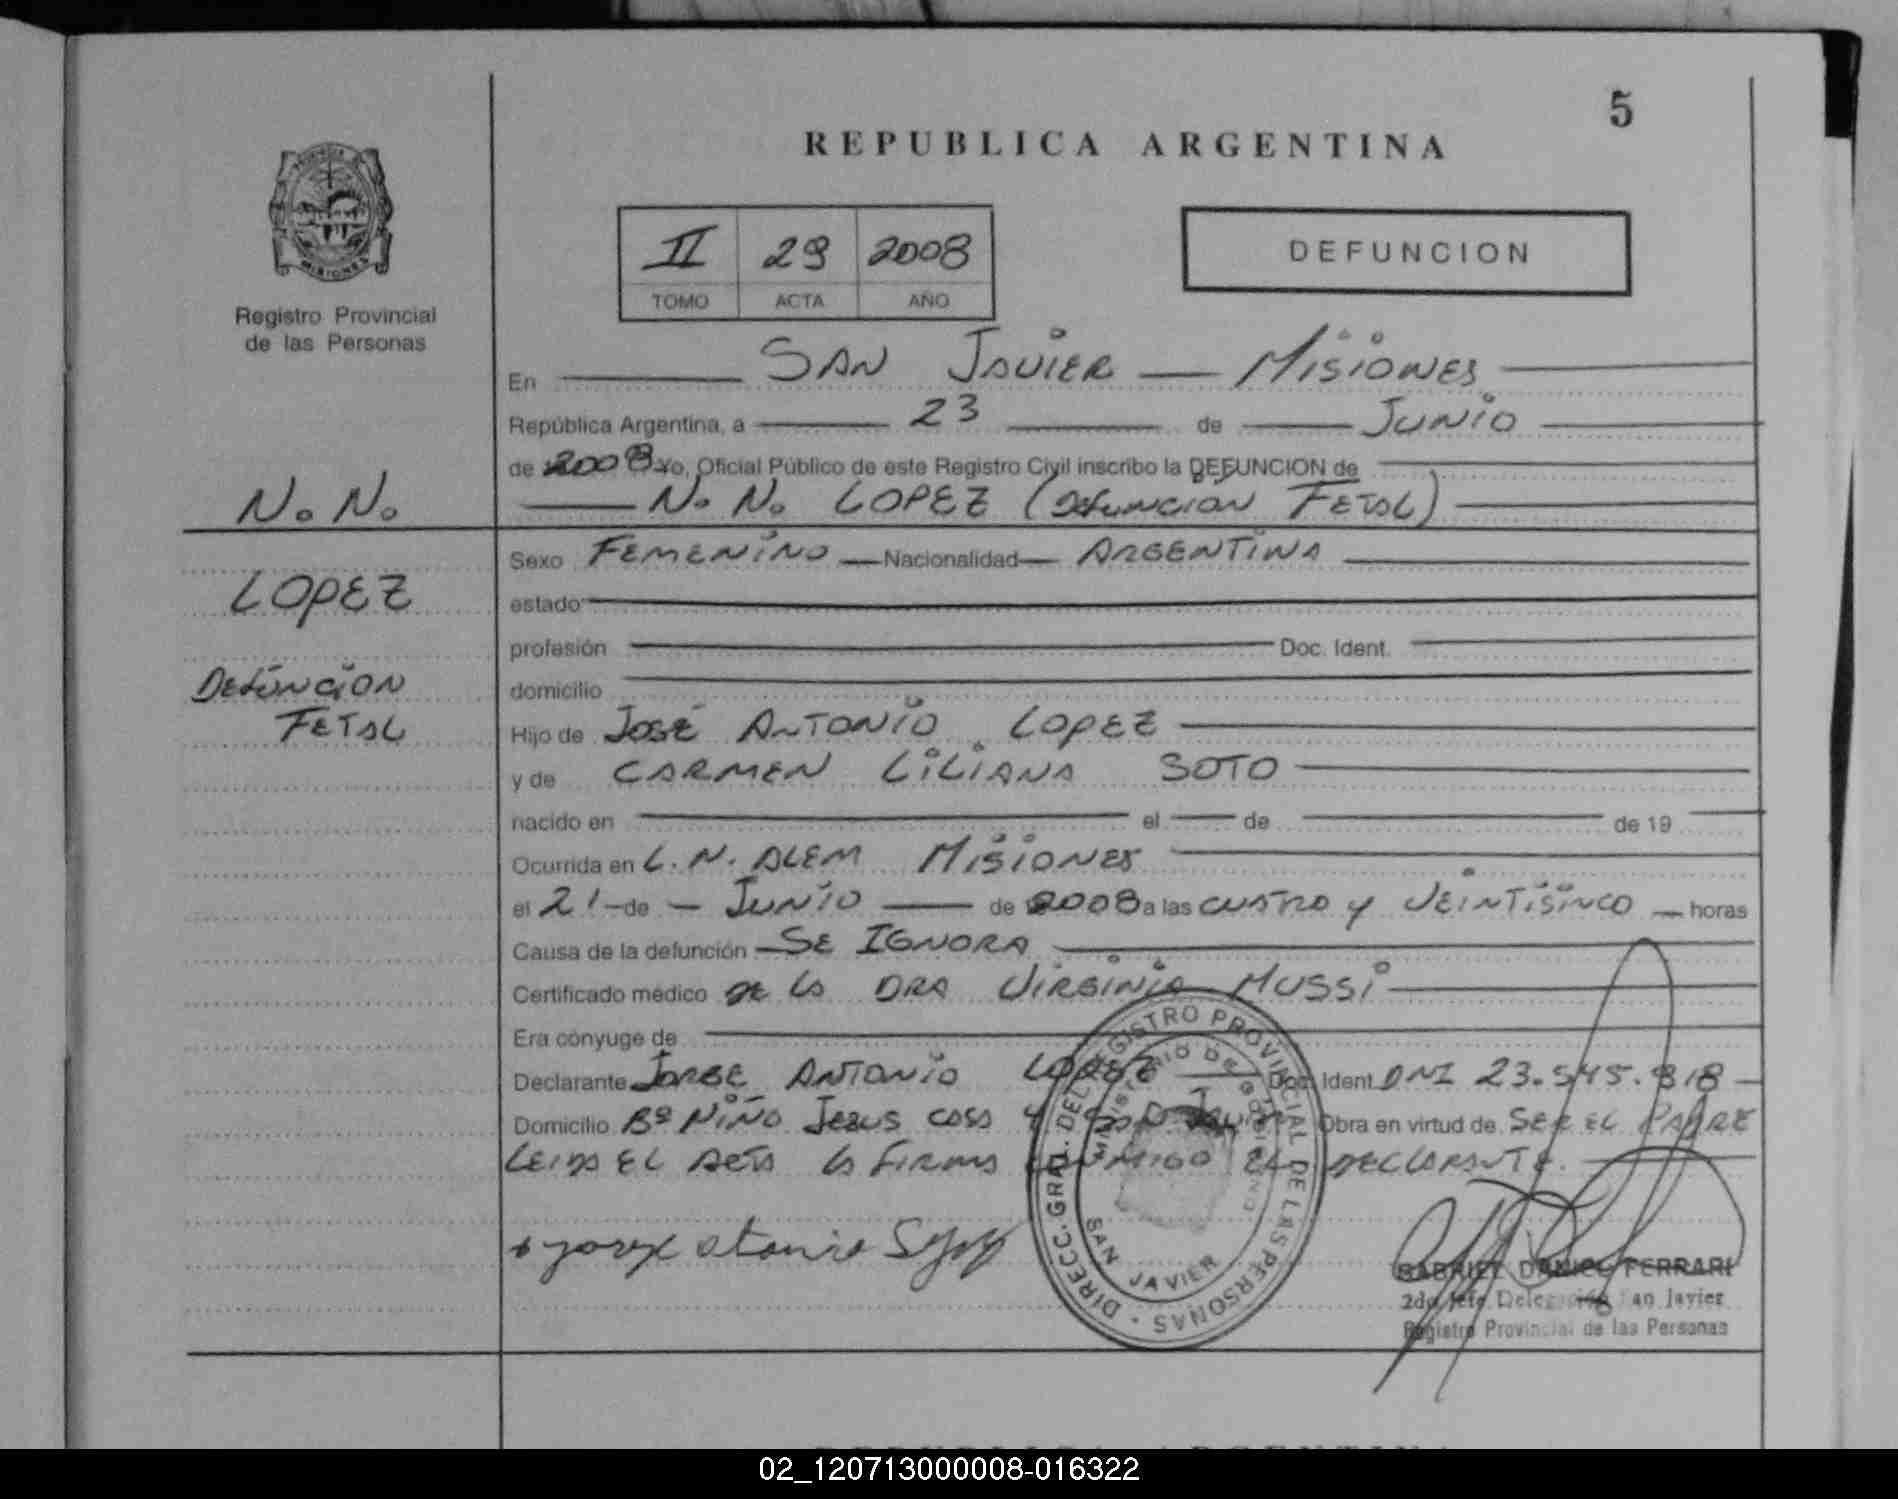 5
REPUBLICA ARGENTINA
PROVINCIA DE
MISIONES
Registro Provincial
de las Personas
II 29 2008
TOMO ACTA AÑO
DEFUNCION
En SAN JAVIER — MISIONES
República Argentina, a 23 de JUNIO
de 2008 Yo, Oficial Público de este Registro Civil inscribo la DEFUNCION de
N. N. LOPEZ (Defuncion FETAL)
N. N.
LOPEZ
DEFUNCION
FETAL
Sexo FEMENINO Nacionalidad ARGENTINA
estado
profesión Doc. Ident.
domicilio
Hijo de JOSÉ ANTONIO LOPEZ
y de CARMEN LILIANA SOTO
nacido en el de de 19
Ocurrida en L. N. ALEM MISIONES
el 21 de JUNIO de 2008 a las CUATRO y VEINTISINCO horas
Causa de la defunción SE IGNORA
Certificado médico DE LA DRA VIRGINIA MUSSI
Era cónyuge de
Declarante JORGE ANTONIO LOPEZ Doc. Ident DNI 23.545.818
Domicilio Bº NIÑO JESUS CASA 4 SAN JAVIER Obra en virtud de SER EL PADRE
LEIDA EL ACTA LA FIRMA CONMIGO EL DECLARANTE.
DIRECC. GRAL. DEL REGISTRO PROVINCIAL DE LAS PERSONAS
MINISTERIO DE GOBIERNO
SAN JAVIER
GABRIEL DANIEL FERRARI
2do Jefe Delegación San Javier
Registro Provincial de las Personas
REPUBLICA ARGENTINA
02_120713000008-016322